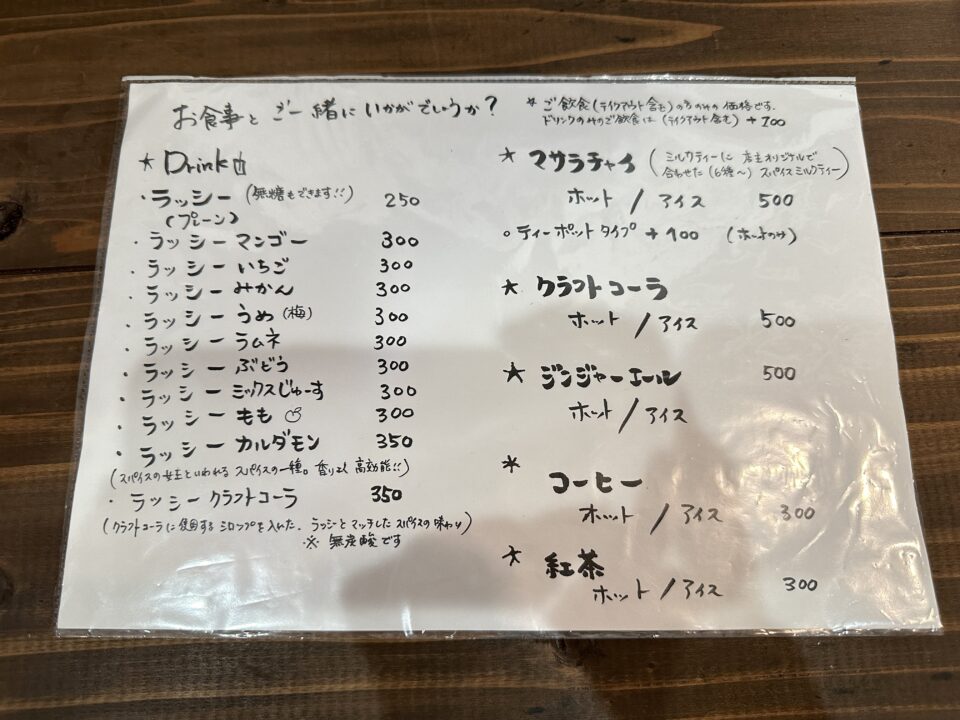 お食事とご一緒にいかがでしょうか？
★ Drink
・ラッシー (無糖もできます!!) 250
(プレーン)
・ラッシー マンゴー 300
・ラッシー いちご 300
・ラッシー みかん 300
・ラッシー うめ (梅) 300
・ラッシー ラムネ 300
・ラッシー ぶどう 300
・ラッシー ミックスじゅーす 300
・ラッシー もも 300
・ラッシー カルダモン 350
(スパイスの女王といわれる スパイスの一種。香りよく 高効能!!)
・ラッシー クラフトコーラ 350
(クラフトコーラに使用する シロップを入れた、ラッシーとマッチした スパイスの味わい)
※ 無炭酸です
* ご飲食(テイクアウト含む)の方のみの価格です。
ドリンクのみのご飲食は (テイクアウト含む) +100
★ マサラチャイ (ミルクティーに 店主オリジナルで
合わせた (6種〜) スパイスミルクティー)
ホット / アイス 500
○ ティーポットタイプ +100 (ホットのみ)
★ クラフトコーラ
ホット / アイス 500
★ ジンジャーエール 500
ホット / アイス
* コーヒー
ホット / アイス 300
★ 紅茶
ホット / アイス 300